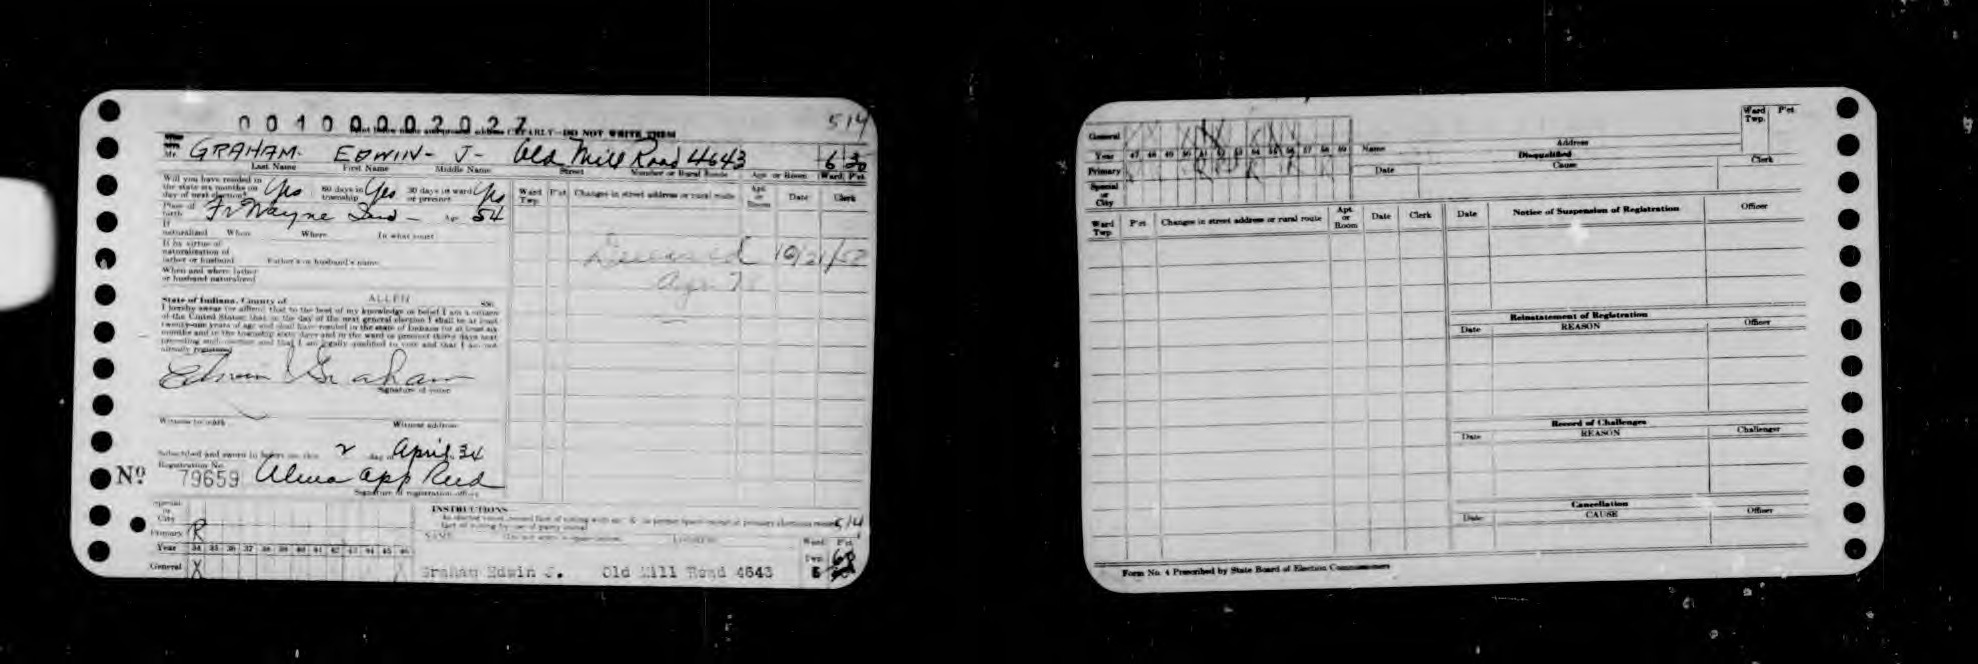 00100002027
514
CLEARLY—DO NOT WRITE THEM
Mr. GRAHAM- EDWIN- J- Old Mill Road 4643 6
Last Name First Name Middle Name Street Number or Rural Route Apt. or Room Ward P'ct.
Will you have resided in the state six months on day of next election? Yes 60 days in township Yes 30 days in ward or precinct Yes
Place of birth Ft Wayne Ind- Age 54
If naturalized When Where In what court
If by virtue of naturalization of father or husband Father's or husband's name
When and where father or husband naturalized
Ward Twp. P'ct. Changes in street address or rural route Apt. or Room Date Clerk
Deceased 10/21/
Age 7
State of Indiana, County of ALLEN ss:
I hereby swear (or affirm) that to the best of my knowledge or belief I am a citizen
of the United States; that on the day of the next general election I shall be at least
twenty-one years of age and shall have resided in the state of Indiana for at least six
months and in the township sixty days and in the ward or precinct thirty days next
preceding such election and that I am legally qualified to vote and that I am not
already registered
Edwin J Graham
Signature of voter
Witness to mark Witness address
Subscribed and sworn to before me this 2 day of April 34
Registration No.
No 79659 Alma App Reed
Signature of registration officer
Special or City
Primary R
Year 34 35 36 37 38 39 40 41 42 43 44 45 46
General X
INSTRUCTIONS
514
NAME
Ward P'ct.
Twp. 68
Graham Edwin J. Old Mill Road 4643 6
General
Year 47 48 49 50 51 52 53 54 55 56 57 58 59
Primary
Special or City
Name Address Ward Twp. P'ct.
Disqualified
Date Cause Clerk
Ward Twp. P'ct. Changes in street address or rural route Apt. or Room Date Clerk
Date Notice of Suspension of Registration Officer
Reinstatement of Registration
Date REASON Officer
Record of Challenges
Date REASON Challenger
Cancellation
Date CAUSE Officer
Form No. 4 Prescribed by State Board of Election Commissioners